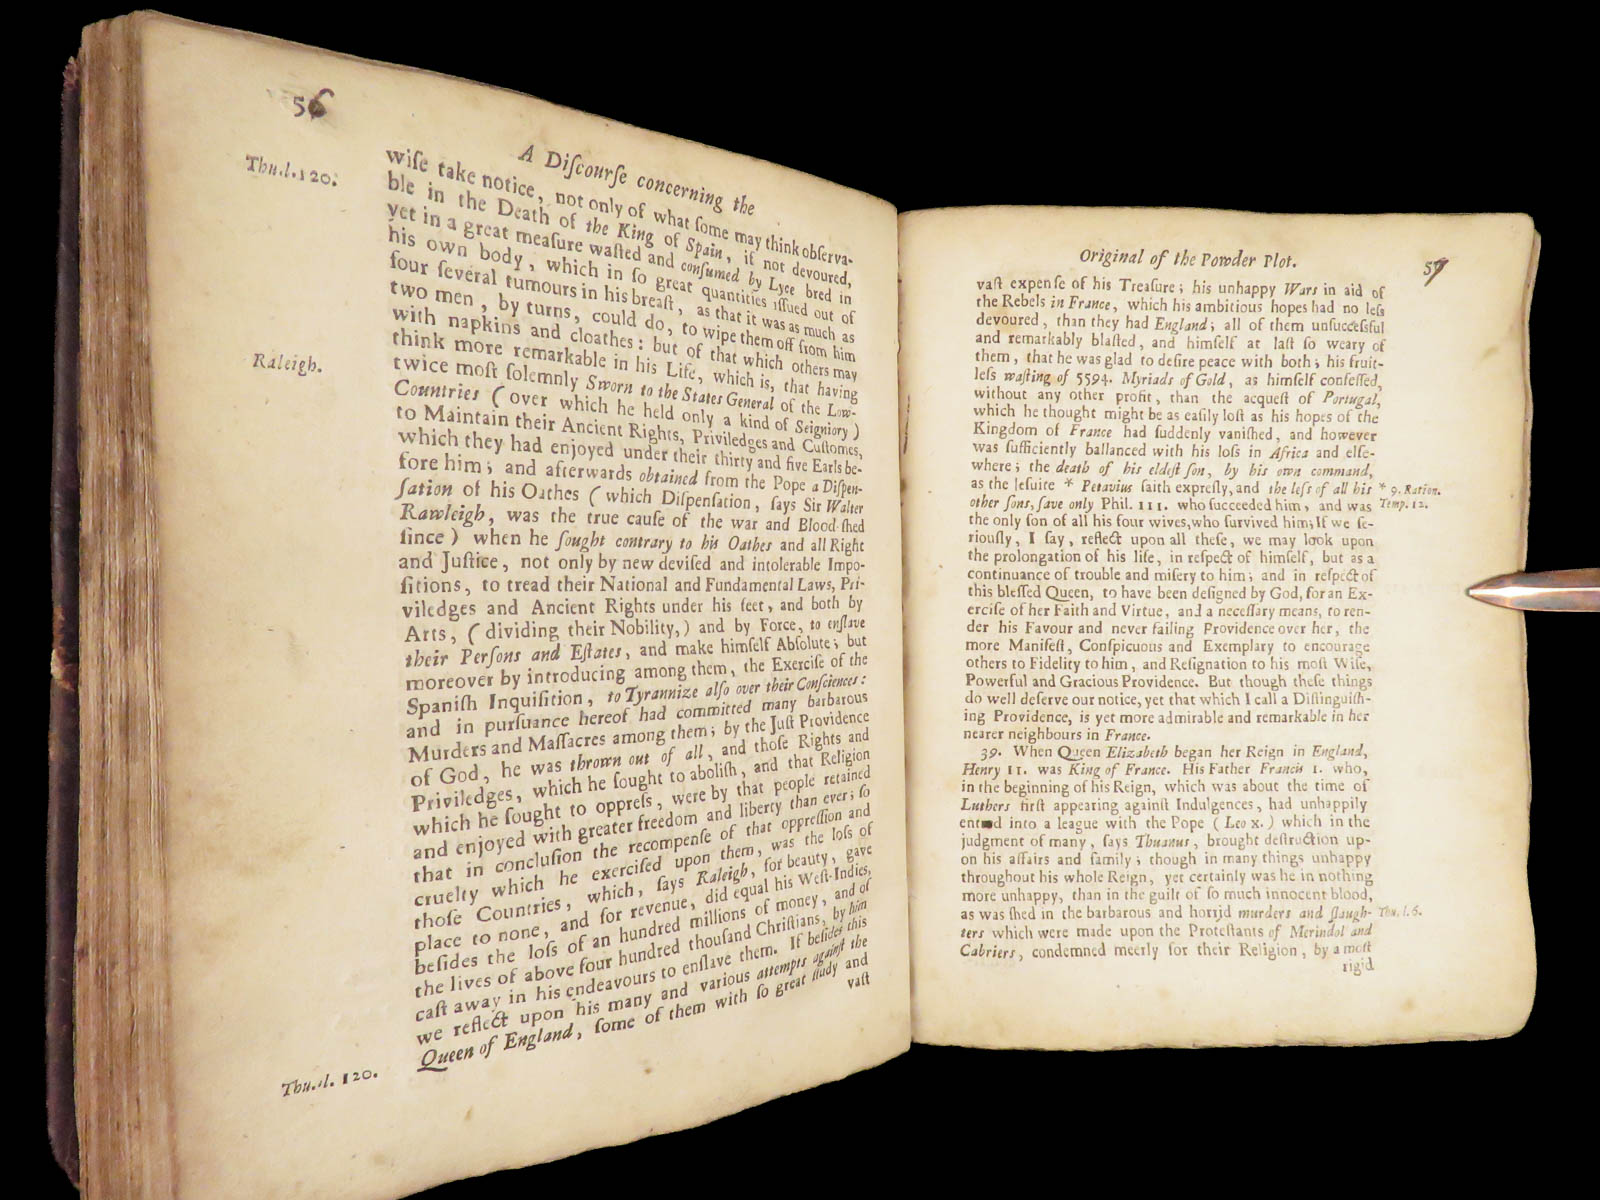 56
A Diſcourſe concerning the
Thu.l.120.
wiſe take notice, not only of what ſome may think obſerva-
ble in the Death of the King of Spain, if not devoured,
yet in a great meaſure waſted and conſumed by Lyce bred in
his own body, which in ſo great quantities iſſued out of
four ſeveral tumours in his breaſt, as that it was as much as
two men, by turns, could do, to wipe them off from him
with napkins and cloathes: but of that which others may
Raleigh.
think more remarkable in his Life, which is, that having
twice moſt ſolemnly Sworn to the States General of the Low-
Countries (over which he held only a kind of Seigniory)
to Maintain their Ancient Rights, Priviledges and Cuſtomes,
which they had enjoyed under their thirty and five Earls be-
fore him; and afterwards obtained from the Pope a Diſpen-
ſation of his Oathes (which Diſpenſation, ſays Sir Walter
Rawleigh, was the true cauſe of the war and Blood-ſhed
ſince) when he ſought contrary to his Oathes and all Right
and Juſtice, not only by new deviſed and intolerable Impo-
ſitions, to tread their National and Fundamental Laws, Pri-
viledges and Ancient Rights under his feet, and both by
Arts, (dividing their Nobility,) and by Force, to enſlave
their Perſons and Eſtates, and make himſelf Abſolute; but
moreover by introducing among them, the Exerciſe of the
Spaniſh Inquiſition, to Tyrannize alſo over their Conſciences:
and in purſuance hereof had committed many barbarous
Murders and Maſſacres among them; by the Juſt Providence
of God, he was thrown out of all, and thoſe Rights and
Priviledges, which he ſought to aboliſh, and that Religion
which he ſought to oppreſs, were by that people retained
and enjoyed with greater freedom and liberty than ever; ſo
that in concluſion the recompenſe of that oppreſſion and
cruelty which he exerciſed upon them, was the loſs of
thoſe Countries, which, ſays Raleigh, for beauty, gave
place to none, and for revenue, did equal his Weſt-Indies,
beſides the loſs of an hundred millions of money, and of
the lives of above four hundred thouſand Chriſtians, by him
caſt away in his endeavours to enſlave them. If beſides this
we reflect upon his many and various attempts againſt the
Thu.l. 120.
Queen of England, ſome of them with ſo great ſtudy and
vaſt
Original of the Powder Plot.
57
vaſt expenſe of his Treaſure; his unhappy Wars in aid of
the Rebels in France, which his ambitious hopes had no leſs
devoured, than they had England; all of them unſucceſsful
and remarkably blaſted, and himſelf at laſt ſo weary of
them, that he was glad to deſire peace with both; his fruit-
leſs waſting of 5594. Myriads of Gold, as himſelf confeſſed,
without any other profit, than the acqueſt of Portugal,
which he thought might be as eaſily loſt as his hopes of the
Kingdom of France had ſuddenly vaniſhed, and however
was ſufficiently ballanced with his loſs in Africa and elſe-
where; the death of his eldeſt ſon, by his own command,
as the Jeſuite * Petavius ſaith expreſly, and the leſs of all his
* 9. Ration.
Temp. 12.
other ſons, ſave only Phil. III. who ſucceeded him, and was
the only ſon of all his four wives, who ſurvived him; If we ſe-
riouſly, I ſay, reflect upon all theſe, we may look upon
the prolongation of his life, in reſpect of himſelf, but as a
continuance of trouble and miſery to him; and in reſpect of
this bleſſed Queen, to have been deſigned by God, for an Ex-
erciſe of her Faith and Virtue, and a neceſſary means, to ren-
der his Favour and never failing Providence over her, the
more Manifeſt, Conſpicuous and Exemplary to encourage
others to Fidelity to him, and Reſignation to his moſt Wiſe,
Powerful and Gracious Providence. But though theſe things
do well deſerve our notice, yet that which I call a Diſtinguiſh-
ing Providence, is yet more admirable and remarkable in her
nearer neighbours in France.
39. When Queen Elizabeth began her Reign in England,
Henry II. was King of France. His Father Francis I. who,
in the beginning of his Reign, which was about the time of
Luthers firſt appearing againſt Indulgences, had unhappily
entred into a league with the Pope (Leo X.) which in the
judgment of many, ſays Thuanus, brought deſtruction up-
on his affairs and family; though in many things unhappy
throughout his whole Reign, yet certainly was he in nothing
more unhappy, than in the guilt of ſo much innocent blood,
as was ſhed in the barbarous and horrid murders and ſlaugh-
Thu. l.6.
ters which were made upon the Proteſtants of Merindol and
Cabriers, condemned meerly for their Religion, by a moſt
rigid